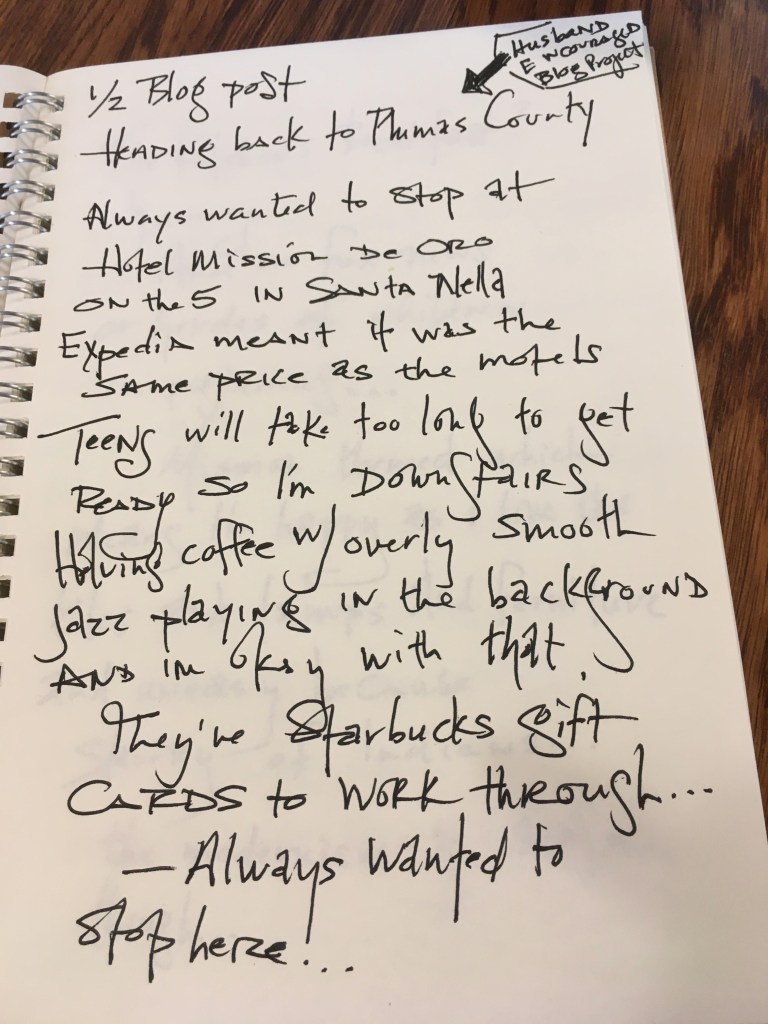 Husband
Encouraged
Blog Project
1/2 Blog post
Heading back to Plumas County
Always wanted to stop at
Hotel Mission De Oro
on the 5 in Santa Nella
Expedia meant it was the
same price as the motels
Teens will take too long to get
ready so I'm downstairs
Having coffee w/ overly smooth
jazz playing in the background
and im okay with that.
They've Starbucks gift
cards to work through...
— Always wanted to
stop here!...